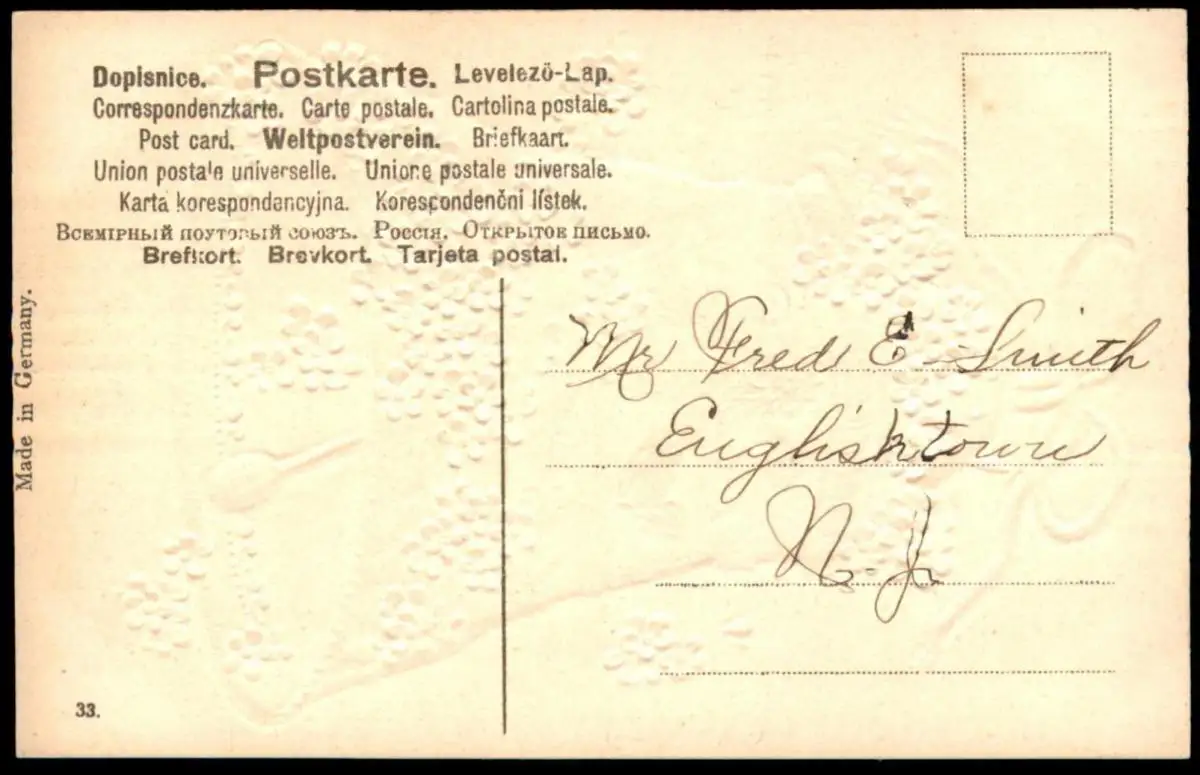 Dopisnice. Postkarte. Levelezö-Lap.
Correspondenzkarte. Carte postale. Cartolina postale.
Post card. Weltpostverein. Briefkaart.
Union postale universelle. Unione postale universale.
Karta korespondencyjna. Korespondenční lístek.
Всемірный поутовый союзъ. Россія. Открытов письмо.
Brefkort. Brevkort. Tarjeta postal.
Made in Germany.
Mr Fred E Smith
Englishtown
N. J.
33.